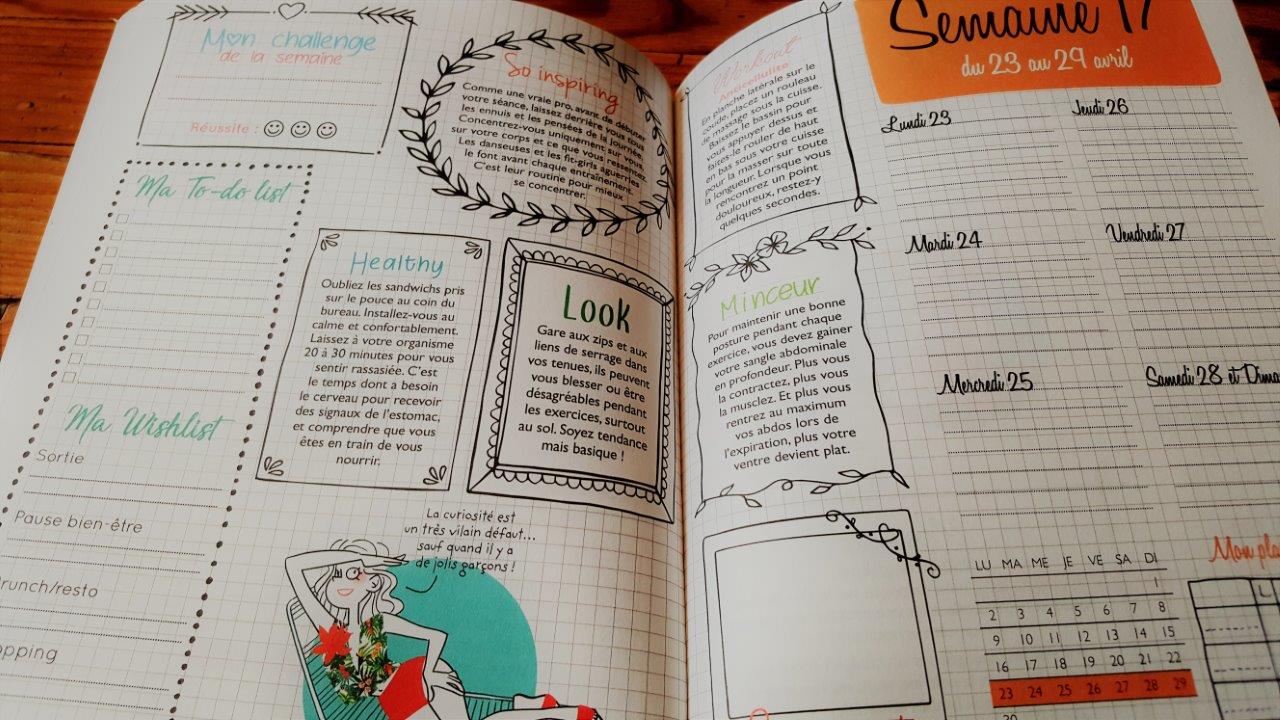 Mon challenge
de la semaine
Réussite :
Ma To-do list
Ma Wishlist
Sortie
Pause bien-être
runch/resto
opping
So inspiring
Comme une vraie pro, avant de débuter
votre séance, laissez derrière vous tous
les ennuis et les pensées de la journée.
Concentrez-vous uniquement sur vous,
sur votre corps et ce que vous ressentez.
Les danseuses et les fit-girls aguerries
le font avant chaque entraînement.
C'est leur routine pour mieux
se concentrer.
Healthy
Oubliez les sandwichs pris
sur le pouce au coin du
bureau. Installez-vous au
calme et confortablement.
Laissez à votre organisme
20 à 30 minutes pour vous
sentir rassasiée. C'est
le temps dont a besoin
le cerveau pour recevoir
des signaux de l'estomac,
et comprendre que vous
êtes en train de vous
nourrir.
Look
Gare aux zips et aux
liens de serrage dans
vos tenues, ils peuvent
vous blesser ou être
désagréables pendant
les exercices, surtout
au sol. Soyez tendance
mais basique !
La curiosité est
un très vilain défaut...
sauf quand il y a
de jolis garçons !
Workout
Anticellulite
En planche latérale sur le
coude, placez un rouleau
de massage sous la cuisse.
Baissez le bassin pour
vous appuyer dessus et
faites le rouler de haut
en bas sous votre cuisse
pour la masser sur toute
la longueur. Lorsque vous
rencontrez un point
douloureux, restez-y
quelques secondes.
Minceur
Pour maintenir une bonne
posture pendant chaque
exercice, vous devez gainer
votre sangle abdominale
en profondeur. Plus vous
la contractez, plus vous
la musclez. Et plus vous
rentrez au maximum
vos abdos lors de
l'expiration, plus votre
ventre devient plat.
Semaine 17
du 23 au 29 avril
Lundi 23
Jeudi 26
Mardi 24
Vendredi 27
Mercredi 25
Samedi 28 et Dima
LU MA ME JE VE SA DI
1
2 3 4 5 6 7 8
9 10 11 12 13 14 15
16 17 18 19 20 21 22
23 24 25 26 27 28 29
30
Mon pla
L